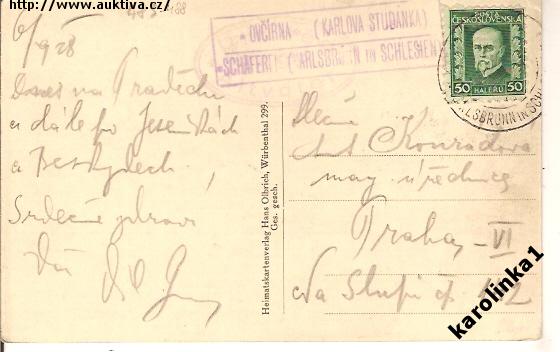 http://www.auktiva.cz/
6/9 28
Dnes na Pradědu
a dále po Jeseníkách
a Beskydech.
Srdečně zdraví
Váš
OVČÍRNA (KARLOVA STUDÁNKA)
SCHÄFEREI (KARLSBRUNN IN SCHLESIEN)
POŠTA
ČESKOSLOVENSKÁ
50 HALÉŘŮ 50
KARLSBRUNN IN SCHL
Heimatskartenverlag Hans Olbrich, Würbenthal 299.
Ges. gesch.
Slečna
Konrádova
mag. úřednice
Praha - VI
Na Slupi čp. 442
karolinka1